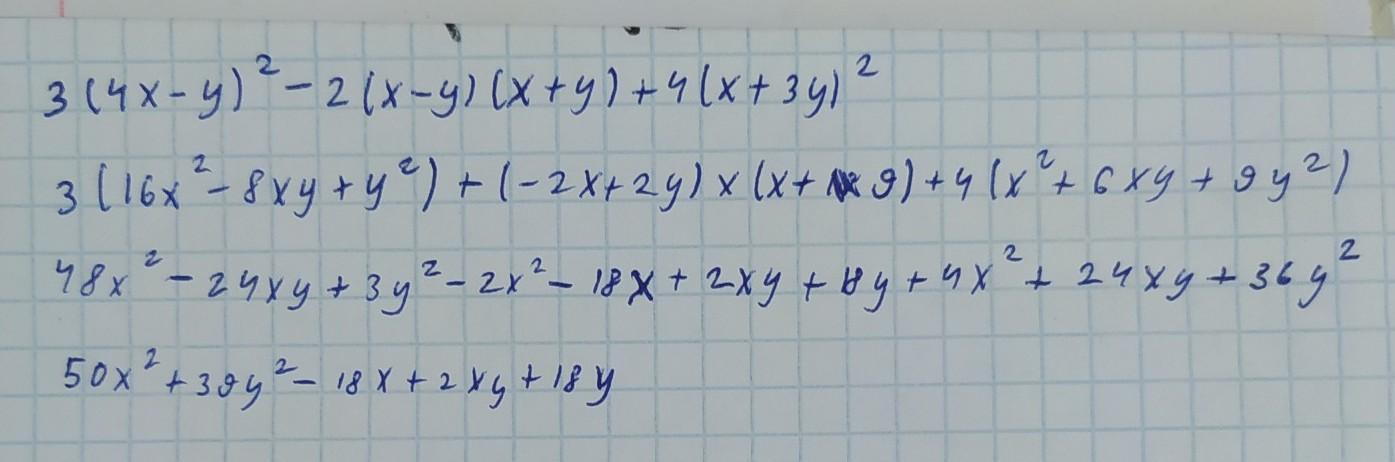 3(4x-y)²-2(x-y)(x+y)+4(x+3y)²
3(16x²-8xy+y²)+(-2x+2y)×(x+9)+4(x²+6xy+9y²)
48x²-24xy+3y²-2x²-18x+2xy+18y+4x²+24xy+36y²
50x²+39y²-18x+2xy+18y